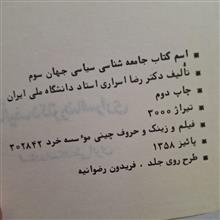 اسم کتاب جامعه شناسی سیاسی جهان سوم
تألیف دکتر رضا اسراری استاد دانشگاه ملی ایران
چاپ دوم
تیراژ ۳۰۰۰
فیلم و زینگ و حروف چینی مؤسسه خرد ۳۰۲۸۴۲
پائیز ۱۳۵۸
طرح روی جلد . فریدون رضوانیه